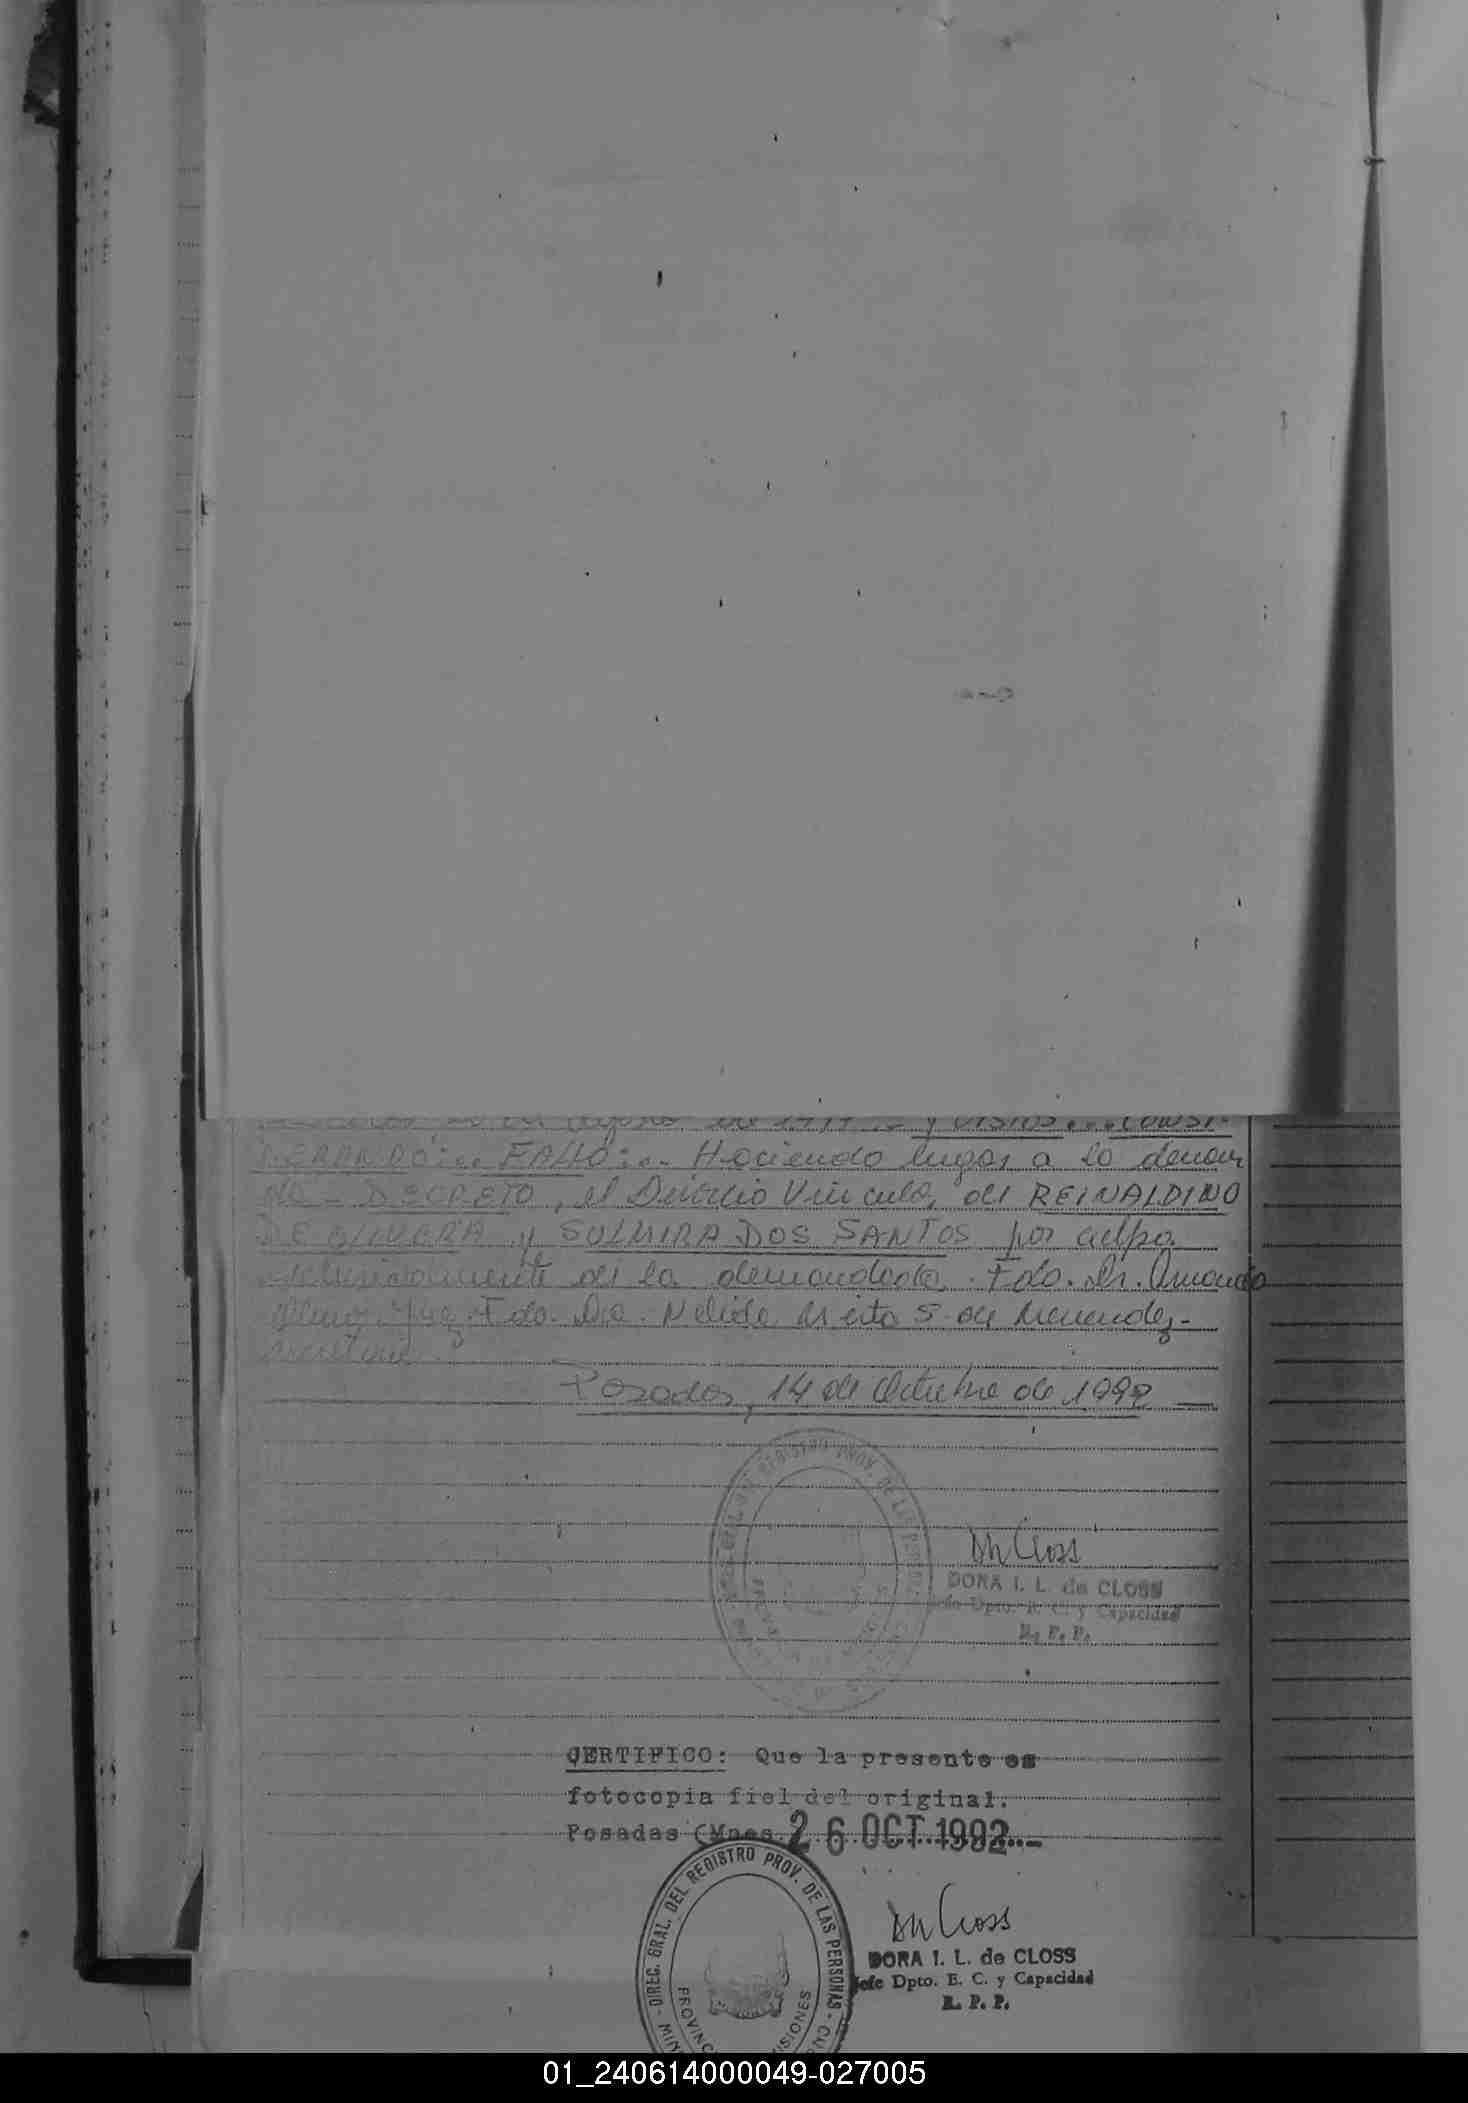 de 1977 .- y VISTOS...CONSI-
DERANDO:.. FALLO:.- Haciendo lugar a la deman
da - DECRETO, el Divorcio Vincular, de REINALDINO
DE OLIVERA y SULMIRA DOS SANTOS por culpa
exclusivamente de la demandada. Fdo. Dr. Armando
Juez. Fdo. Dra. Nelida S. de Menendez-
secretaria
Posadas, 14 de Octubre de 1992
DORA I. L. de CLOSS
Jefe Dpto. E. C. y Capacidad
R. P. P.
CERTIFICO: Que la presente es
fotocopia fiel del original.
Posadas (Mnes. 26 OCT. 1992..-
DIREC. GRAL. DEL REGISTRO PROV. DE LAS PERSONAS
DORA I. L. de CLOSS
Jefe Dpto. E. C. y Capacidad
R. P. P.
01_240614000049-027005